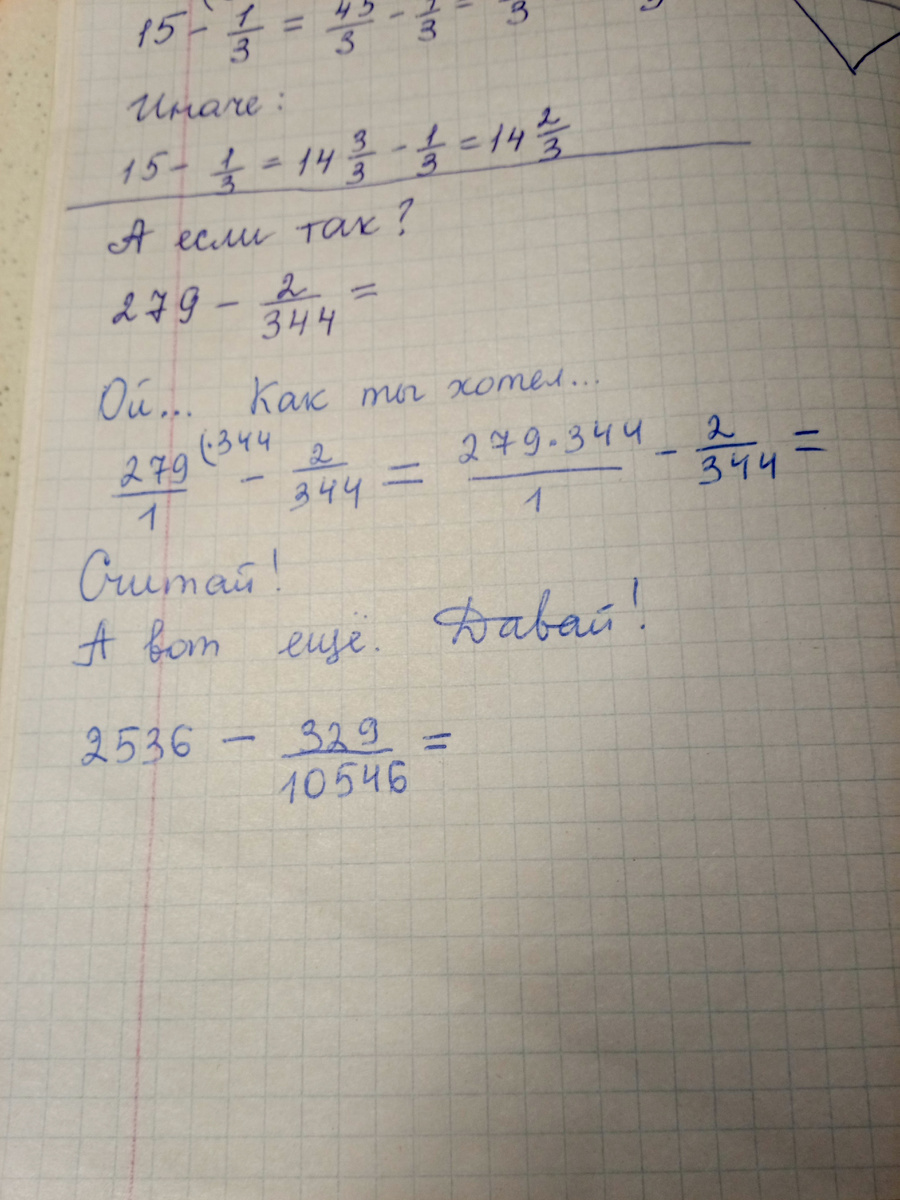 15 - 1/3 = 45/3 - 1/3 =
Иначе:
15 - 1/3 = 14 3/3 - 1/3 = 14 2/3
А если так?
279 - 2/344 =
Ой... Как ты хотел...
279/1 (·344 - 2/344 = 279·344/1 - 2/344 =
Считай!
А вот ещё. Давай!
2536 - 329/10546 =